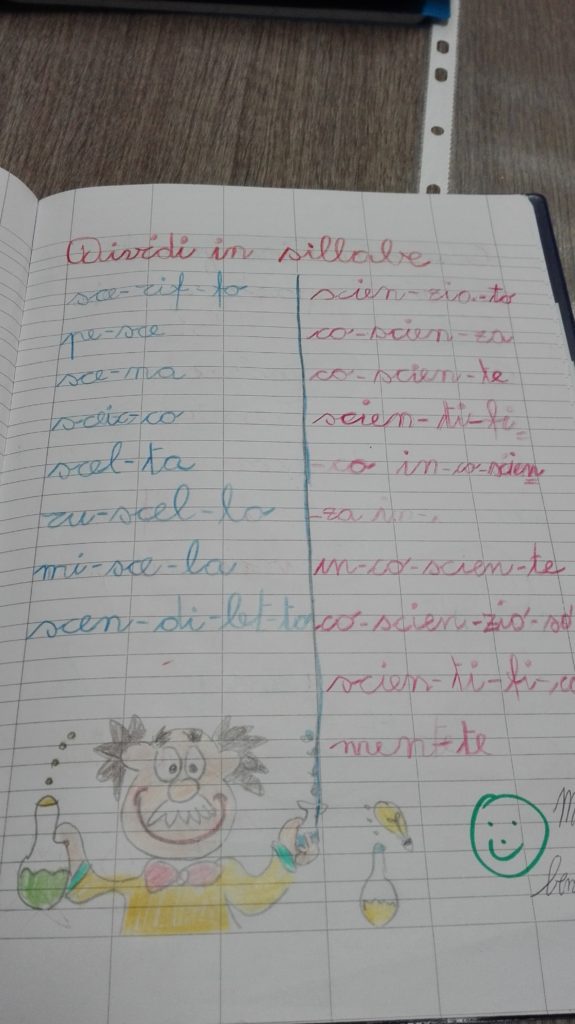 Dividi in sillabe
sce-rif-fo
pe-sce
sce-ma
scel-ta
ru-scel-lo
mi-sce-la
scen-di-let-to
scien-zia-to
co-scien-za
co-scien-te
scien-ti-fi
-co in-co-scien
-za
in-co-scien-te
co-scien-zio-so
scien-ti-fi-co
men-te
ben